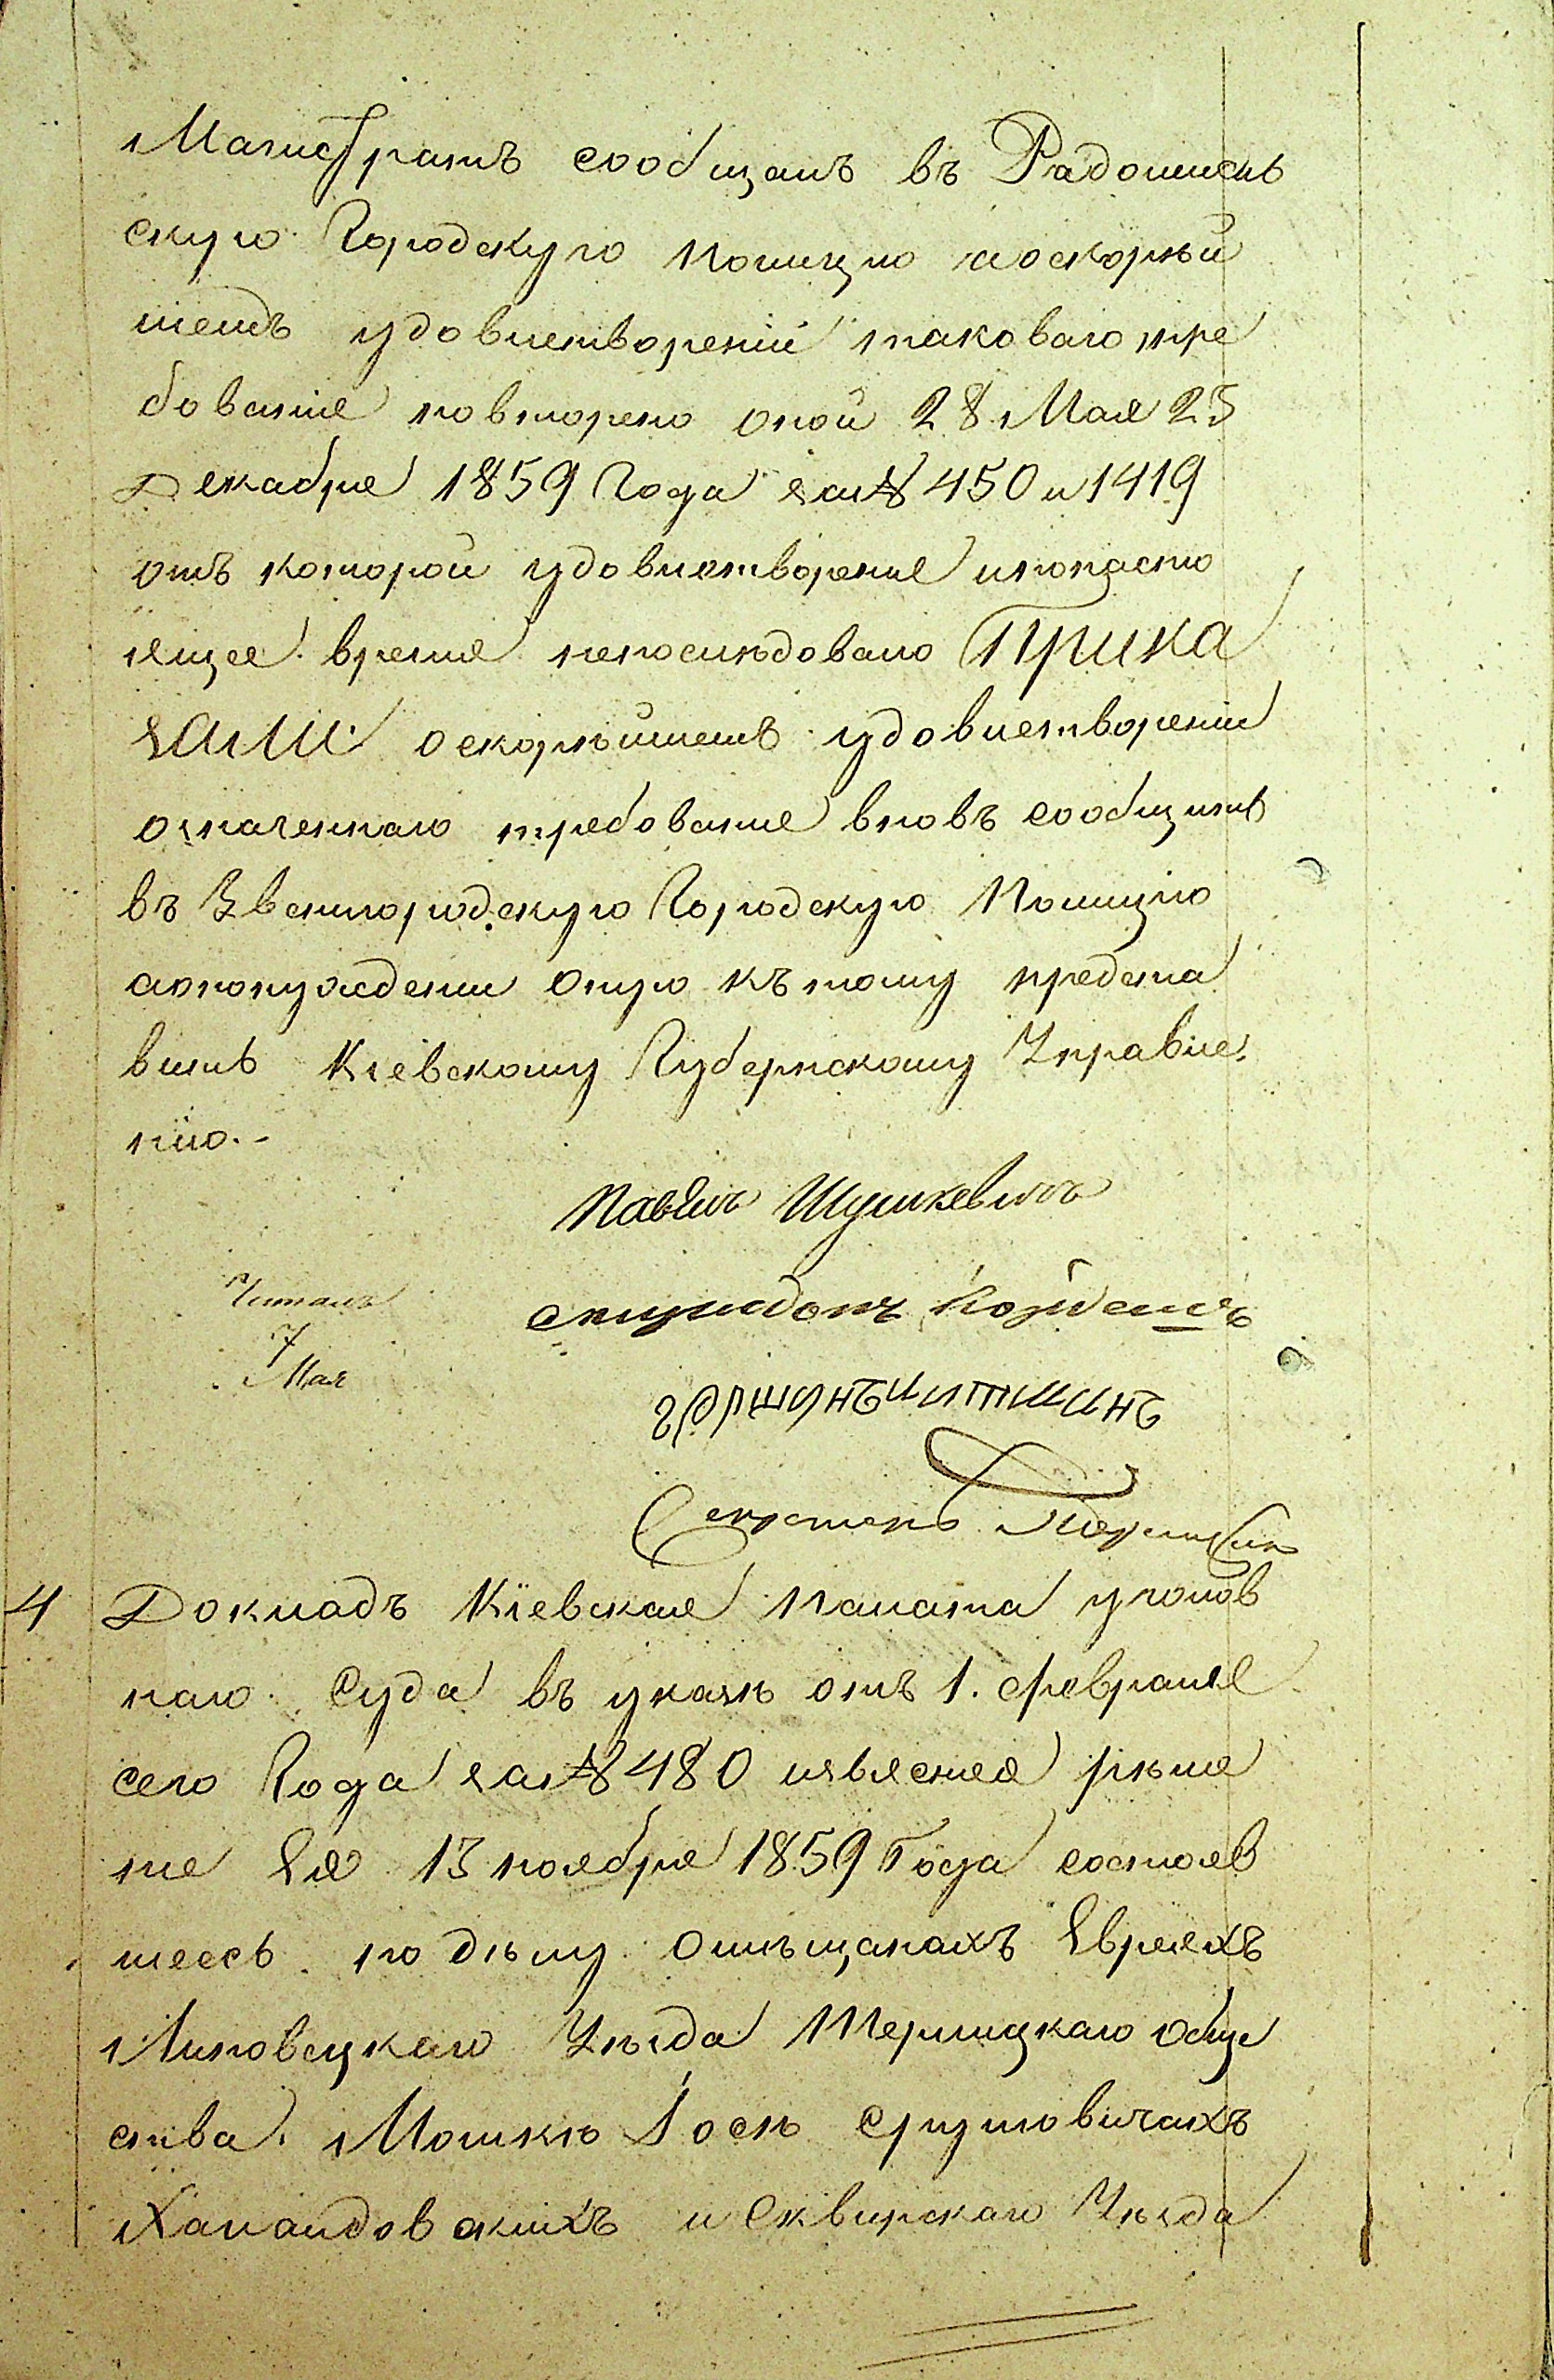 Магистратъ сообщалъ въ Радомысль
скую Городскую полицію аоскорѣй
шемъ удовлетвореніи таковаго тре
бованія повторено оной 28 Мая 23
Декабря 1859 Года за № 450 и 1419
отъ которой удовлетворенія ипонасто
ящее время непослѣдовало Прика
зали: оскорѣйшемъ удовлетвореніи
означеннаго требованія вновь сообщить
въ Звенигородскую Городскую Полицію
аопонужденіи оную къ тому предста
вить Кіевскому Губернскому Управле
нію.-
Павелъ Шушкевичъ
Спиридонъ
Читалъ
7
Мая
4 Докладъ Кіевская палата уголов
наго Суда въ указѣ отъ 1. Февраля
сего Года за № 480 изъяснея рѣше
ніе Ея 13 ноября 1859 Года состояв
шеесь по дѣлу омѣщанахъ Евреяхъ
Липовецкаго Уѣзда Терлицкаго обще
ства. Мошкѣ Іосѣ Сруловичахъ
Халаидовскихъ и Сквирскаго Уѣзда